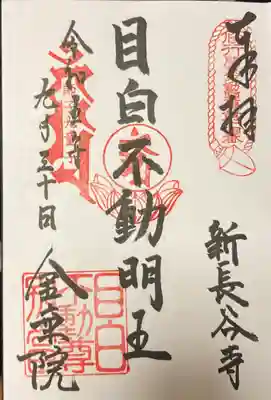 奉拝
新長谷寺
目白不動明王
令和五年
九月三十日
金乗院
目白
不動尊